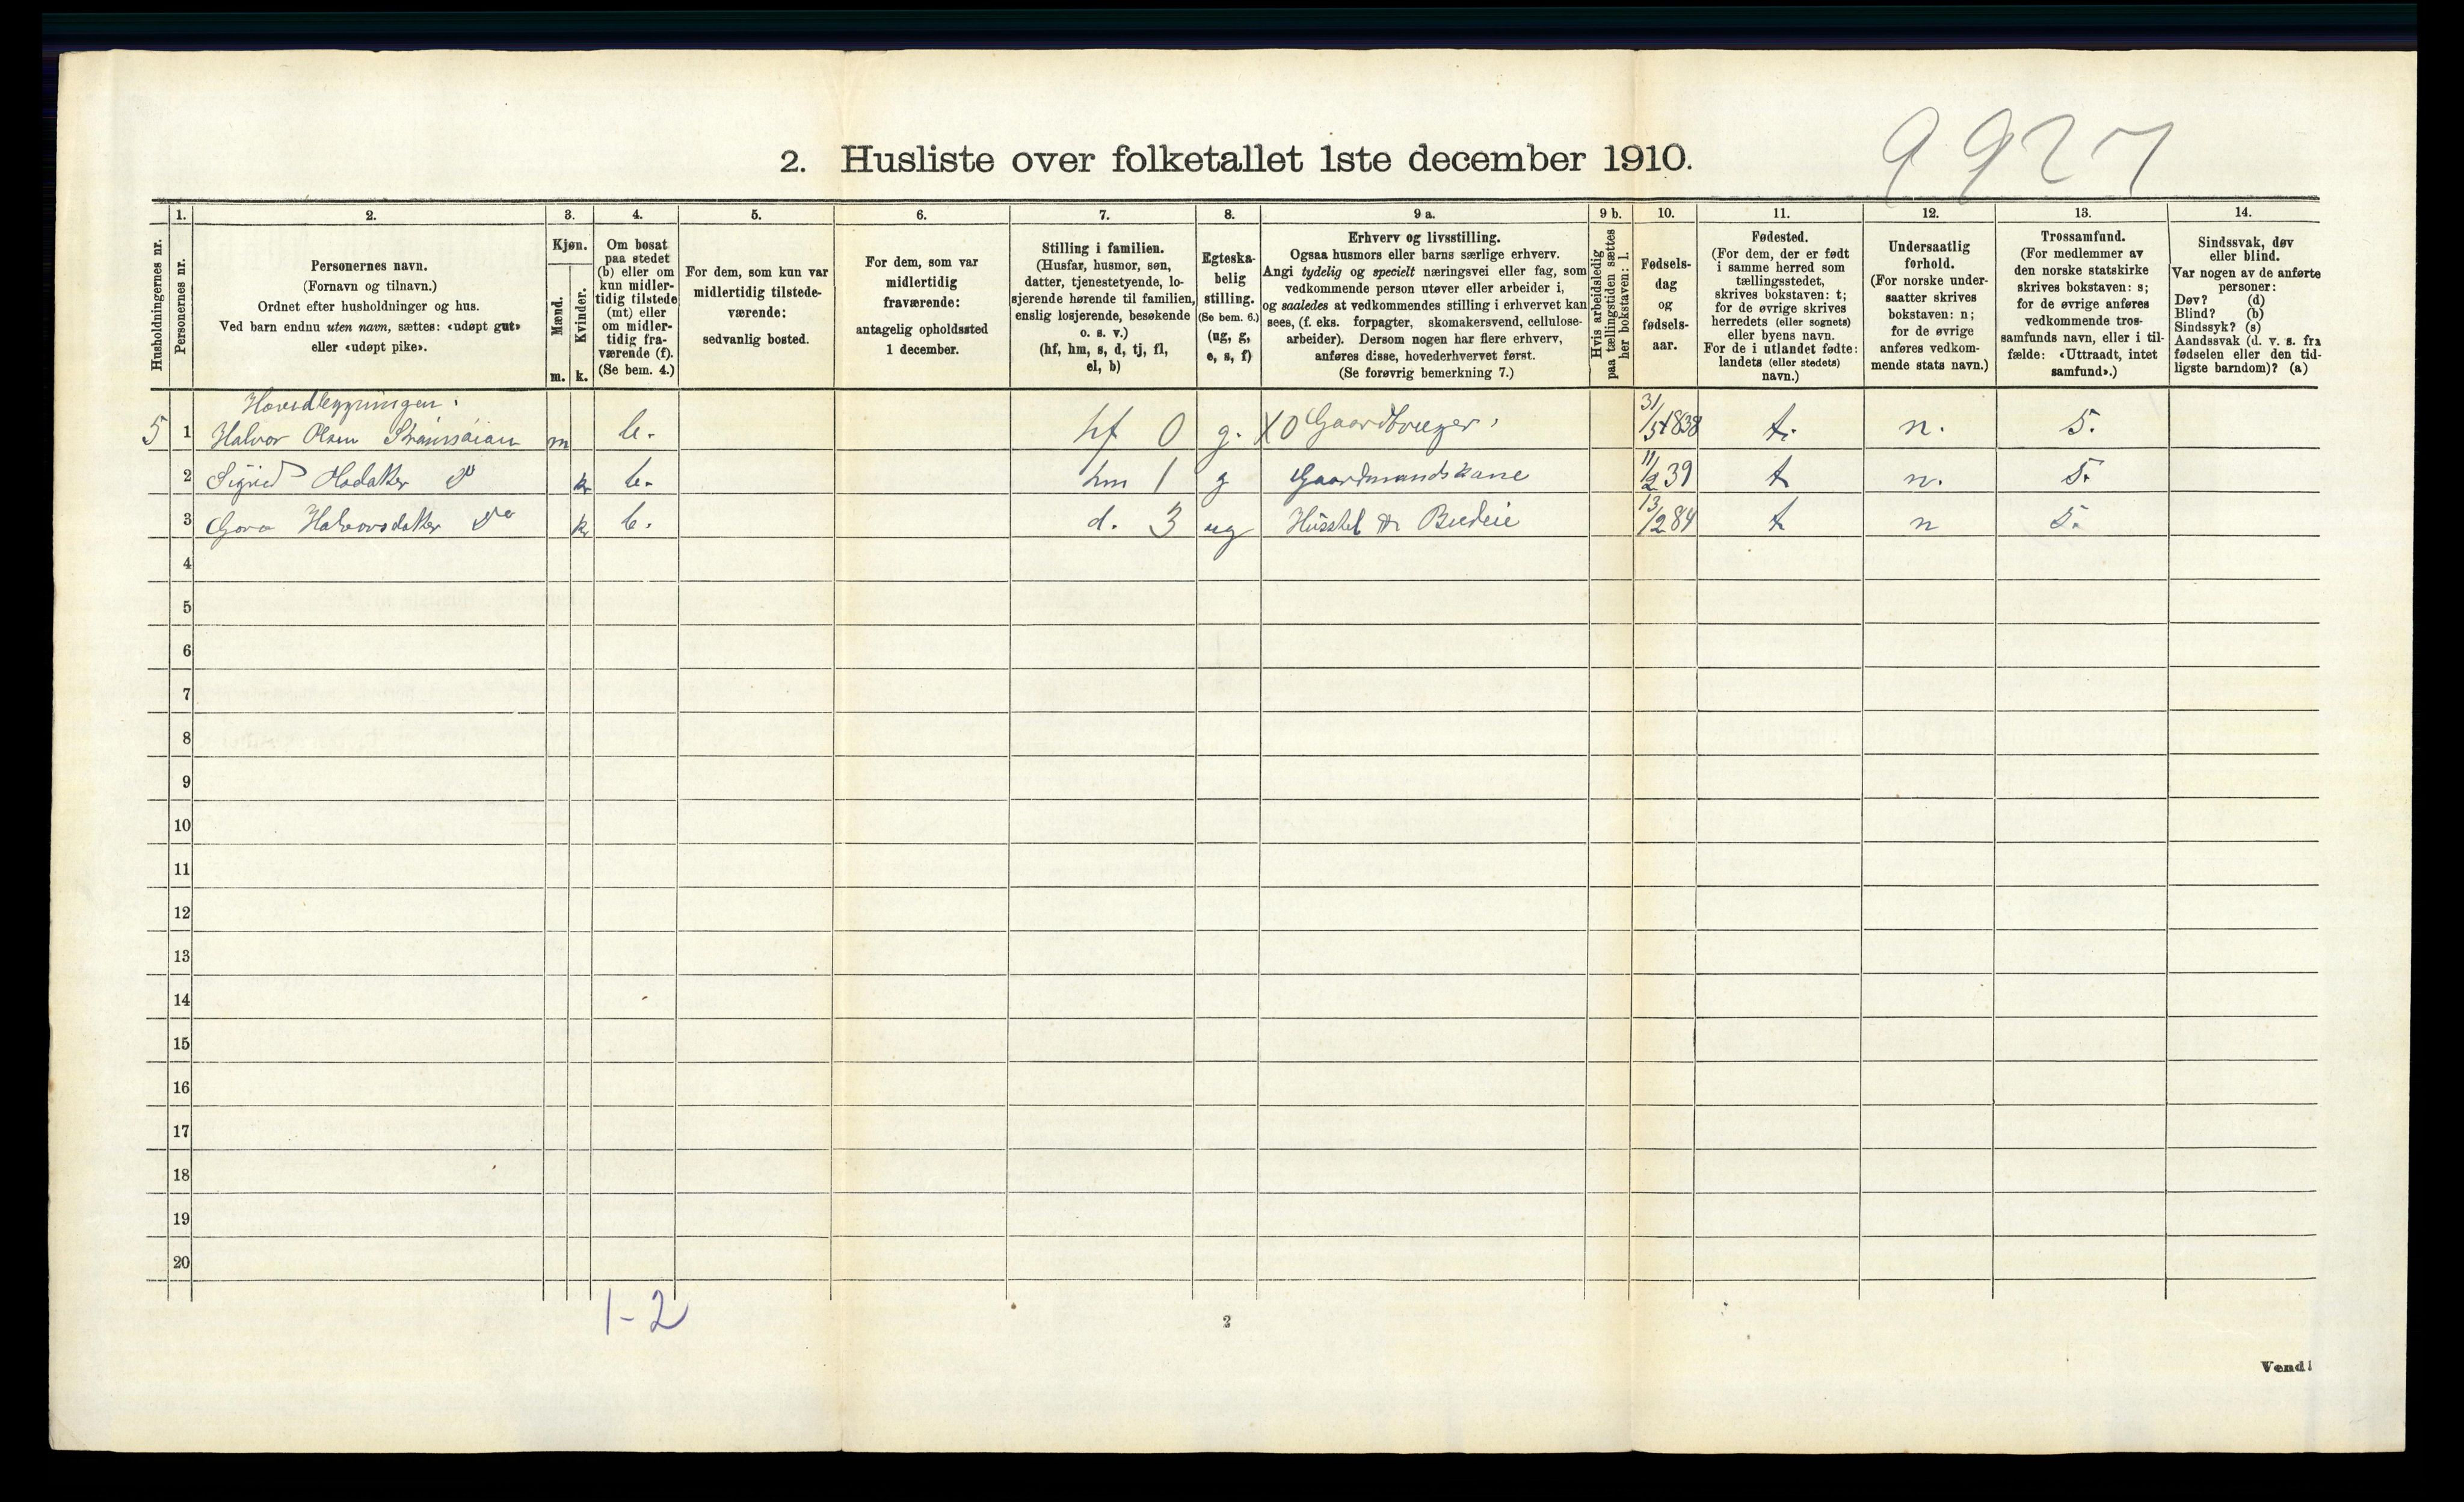 9927
2. Husliste over folketallet 1ste december 1910.
Husholdningernes nr.
1.
Personernes nr.
2.
Personernes navn.
(Fornavn og tilnavn.)
Ordnet efter husholdninger og hus.
Ved barn endnu uten navn, sættes: «udøpt gut»
eller «udøpt pike».
3.
Kjøn.
Mænd.
Kvinder.
m. k.
4.
Om bosat
paa stedet
(b) eller om
kun midler-
tidig tilstede
(mt) eller
om midler-
tidig fra-
værende (f).
(Se bem. 4.)
5.
For dem, som kun var
midlertidig tilstede-
værende:
sedvanlig bosted.
6.
For dem, som var
midlertidig
fraværende:
antagelig opholdssted
1 december.
7.
Stilling i familien.
(Husfar, husmor, søn,
datter, tjenestetyende, lo-
sjerende hørende til familien,
enslig losjerende, besøkende
o. s. v.)
(hf, hm, s, d, tj, fl,
el, b)
8.
Egteska-
belig
stilling.
(Se bem. 6.)
(ug, g,
e, s, f)
9 a.
Erhverv og livsstilling.
Ogsaa husmors eller barns særlige erhverv.
Angi tydelig og specielt næringsvei eller fag, som
vedkommende person utøver eller arbeider i,
og saaledes at vedkommendes stilling i erhvervet kan
sees, (f. eks. forpagter, skomakersvend, cellulose-
arbeider). Dersom nogen har flere erhverv,
anføres disse, hovederhvervet først.
(Se forøvrig bemerkning 7.)
9 b.
Hvis arbeidsledig
paa tællingstiden sættes
her bokstaven: l.
10.
Fødsels-
dag
og
fødsels-
aar.
11.
Fødested.
(For dem, der er født
i samme herred som
tællingsstedet,
skrives bokstaven: t;
for de øvrige skrives
herredets (eller sognets)
eller byens navn.
For de i utlandet fødte:
landets (eller stedets)
navn.)
12.
Undersaatlig
forhold.
(For norske under-
saatter skrives
bokstaven: n;
for de øvrige
anføres vedkom-
mende stats navn.)
13.
Trossamfund.
(For medlemmer av
den norske statskirke
skrives bokstaven: s;
for de øvrige anføres
vedkommende tros-
samfunds navn, eller i til-
fælde: «Uttraadt, intet
samfund».)
14.
Sindssvak, døv
eller blind.
Var nogen av de anførte
personer:
Døv? (d)
Blind? (b)
Sindssyk? (s)
Aandssvak (d. v. s. fra
fødselen eller den tid-
ligste barndom)? (a)
Hovedbygningen:
5 1 Halvor Olsen m b. hf 0 g. X0 Gaardbruger, 31/5 1838 t. n. s.
2 Sigrid do k b. hm 1 g Gaardmandskone 11/2 39 t n. s.
3 Halvorsdatter do k b. d. 3 ug Husstel & Budeie 13/2 84 t n s.
4
5
6
7
8
9
10
11
12
13
14
15
16
17
18
19
20
1-2
2
Vend!